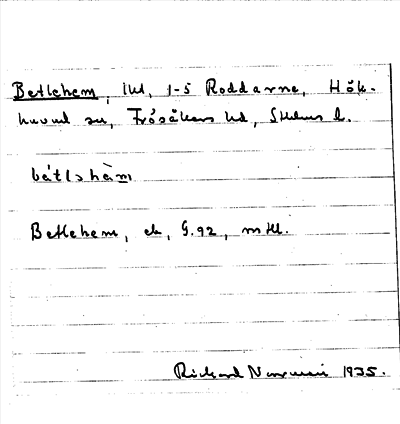 Betlehem, lht, 1-5 Roddarne, Hök-
huvud sn, Frösåkers hd, Sthlms l.
Betlehem, ek, G.92, mtl.
Rickard 1935.